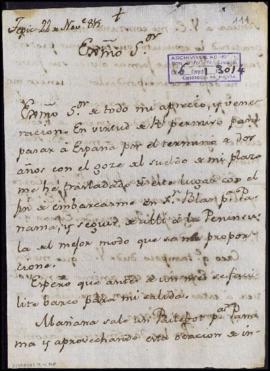 111
Tepic 22 de Nov.e 815
Exmo S.or
Exmo S.or de todo mi aprecio, y vene
racion. En virtud de permiso para
pasar à España por el termino de dos
años con el goze del sueldo de mi plaza
me he trasladado à este lugar con el
fin de embarcarme en S. Blas p.a Pa
nama, y seguir desde alli à la Peninsu
la el mejor modo que se me propor
cione.
Espero que antes de un mes se faci
lite barco para mi salida.
Mañana sale un p.a Pana
ma y aprovechando esta ocacion de in